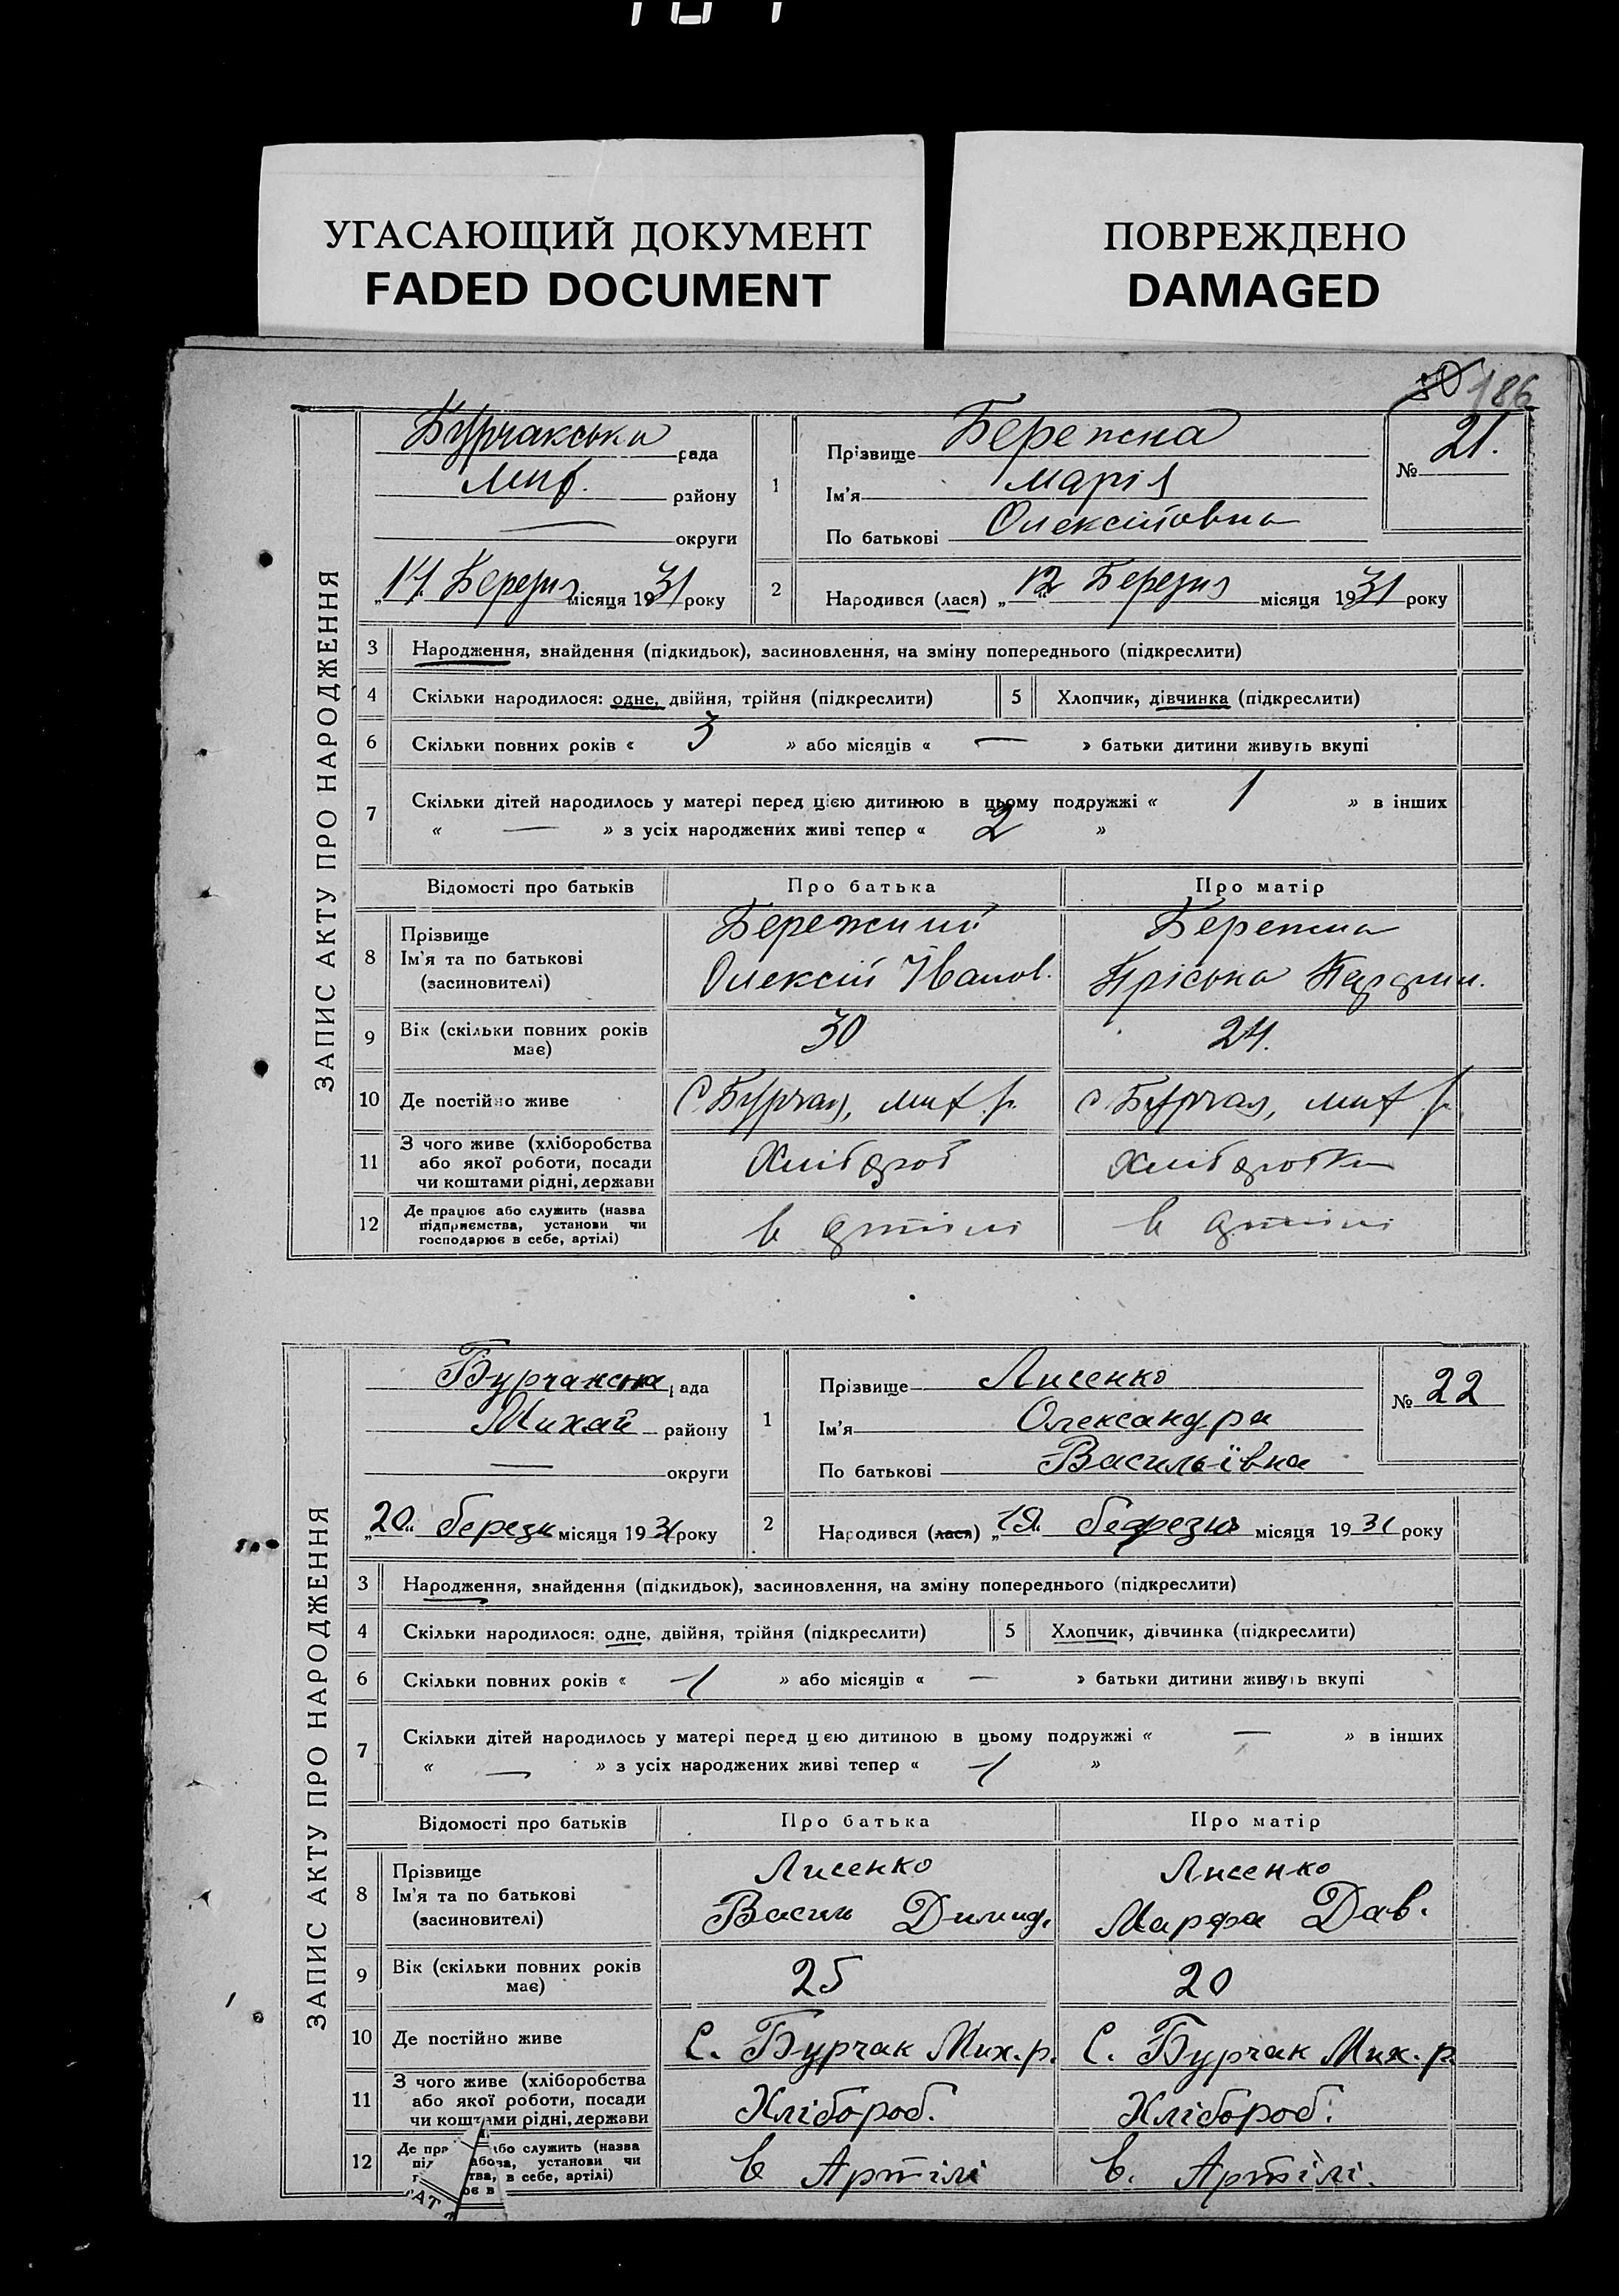 УГАСАЮЩИЙ ДОКУМЕНТ
FADED DOCUMENT
ПОВРЕЖДЕНО
DAMAGED
30 186
ЗАПИС АКТУ ПРО НАРОДЖЕННЯ
Бурчакська рада
Мих. району
— округи
„14“ Березня місяця 1931 року
1
Прізвище Бережна
Ім'я Марія
По батькові Олексіївна
№ 21.
2
Народився (лася) „12“ Березня місяця 1931 року
3 Народження, знайдення (підкидьок), засиновлення, на зміну попереднього (підкреслити)
4 Скільки народилося: одне, двійня, трійня (підкреслити) 5 Хлопчик, дівчинка (підкреслити)
6 Скільки повних років « 3 » або місяців « — » батьки дитини живуть вкупі
7 Скільки дітей народилось у матері перед цією дитиною в цьому подружжі « 1 » в інших
« — » з усіх народжених живі тепер « 2 »
Відомості про батьків Про батька Про матір
8 Прізвище
Ім'я та по батькові
(засиновителі)
Бережний
Олексій Іванов.
Бережна
Пріська
9 Вік (скільки повних років має) 30 24.
10 Де постійно живе С Бурчак, Мих. р. С Бурчак, Мих. р.
11 З чого живе (хліборобства
або якої роботи, посади
чи коштами рідні, держави
Хлібороб Хліборобка
12 Де працює або служить (назва
підприємства, установи чи
господарює в себе, артілі)
в артілі в артілі
ЗАПИС АКТУ ПРО НАРОДЖЕННЯ
Бурчакська рада
Михай району
— округи
„20“ березн місяця 1931 року
1
Прізвище Лисенко
Ім'я Олександра
По батькові Васильївна
№ 22
2
Народився (лася) „19“ березня місяця 1931 року
3 Народження, знайдення (підкидьок), засиновлення, на зміну попереднього (підкреслити)
4 Скільки народилося: одне, двійня, трійня (підкреслити) 5 Хлопчик, дівчинка (підкреслити)
6 Скільки повних років « 1 » або місяців « — » батьки дитини живуть вкупі
7 Скільки дітей народилось у матері перед цією дитиною в цьому подружжі « — » в інших
« — » з усіх народжених живі тепер « 1 »
Відомості про батьків Про батька Про матір
8 Прізвище
Ім'я та по батькові
(засиновителі)
Лисенко
Васил Димид.
Лисенко
Марфа Дав.
9 Вік (скільки повних років має) 25 20
10 Де постійно живе С. Бурчак Мих. р. С. Бурчак Мих. р.
11 З чого живе (хліборобства
або якої роботи, посади
чи коштами рідні, держави
Хлібороб. Хлібороб.
12 Де пра або служить (назва
установи чи
в себе, артілі)
в Артілі в. Артілі.